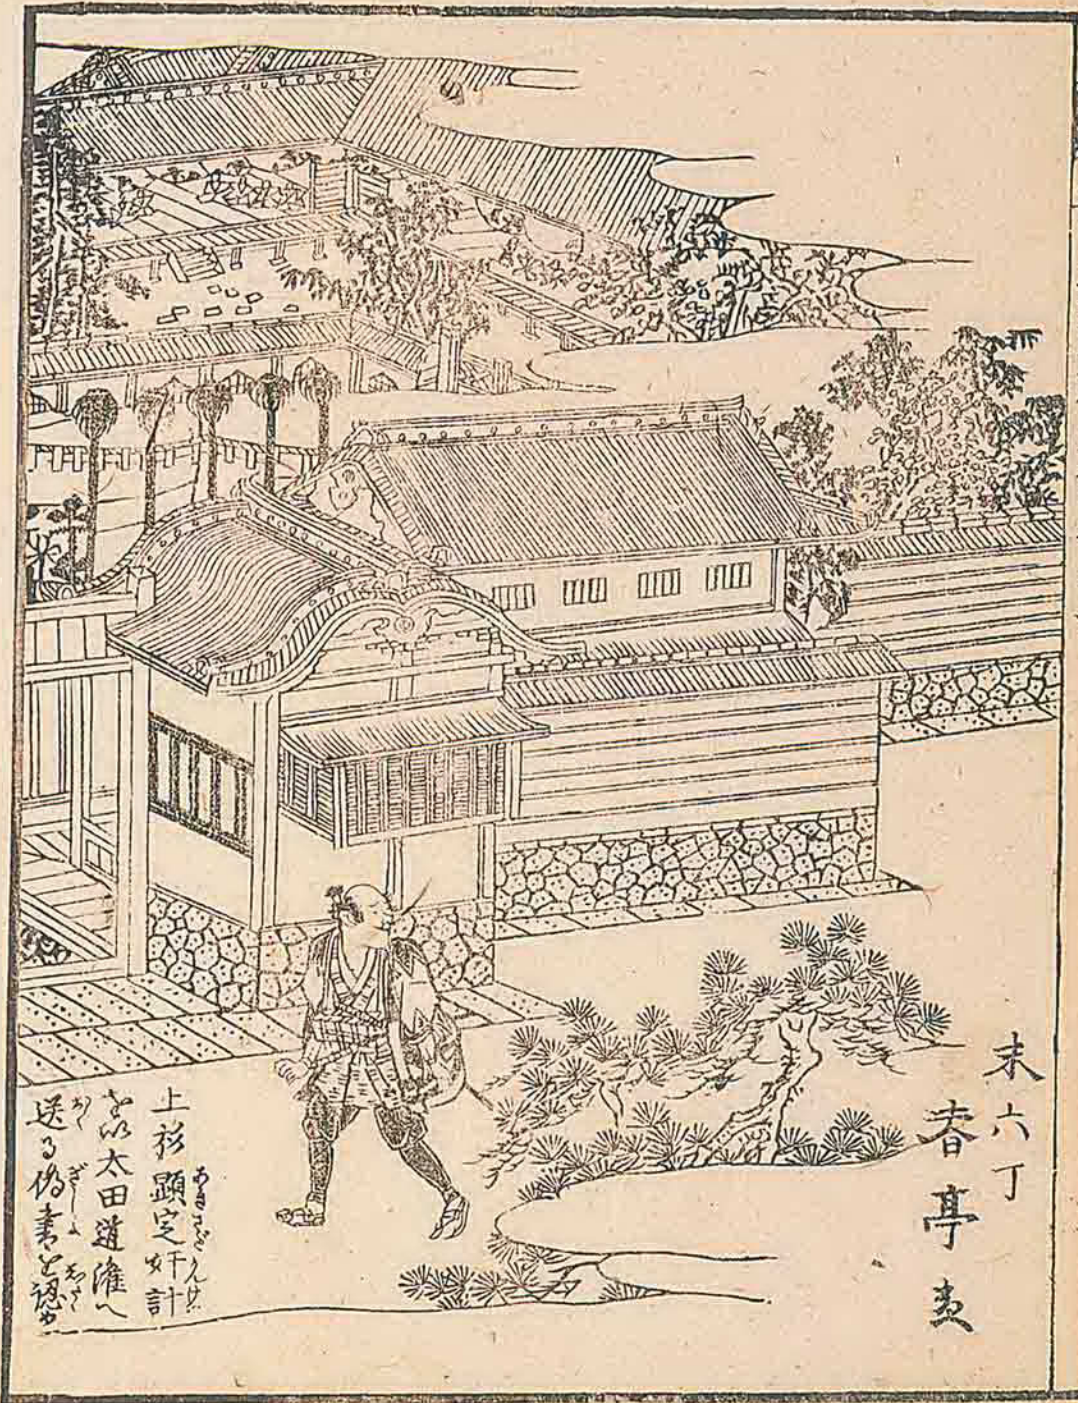 末六丁
春亭画
上杉顕定奸計
を以太田道灌へ
送る偽書を認む